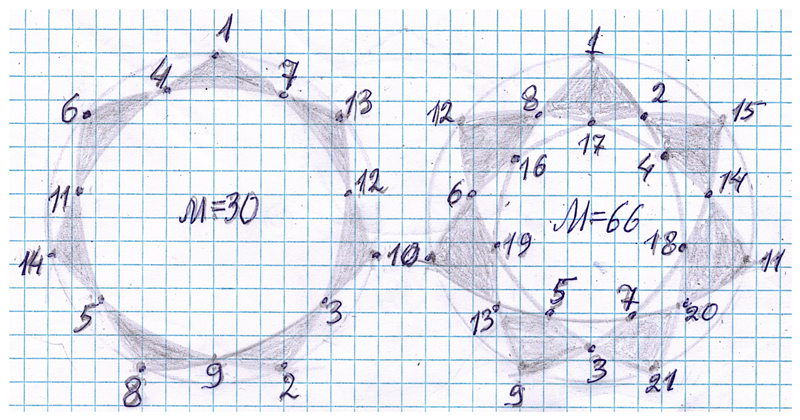 1
4
7
6
13
11
12
M=30
14
10
5
3
8
9
2
1
12
8
2
15
17
16
4
6
14
M=66
19
18
11
13
5
7
20
3
9
21